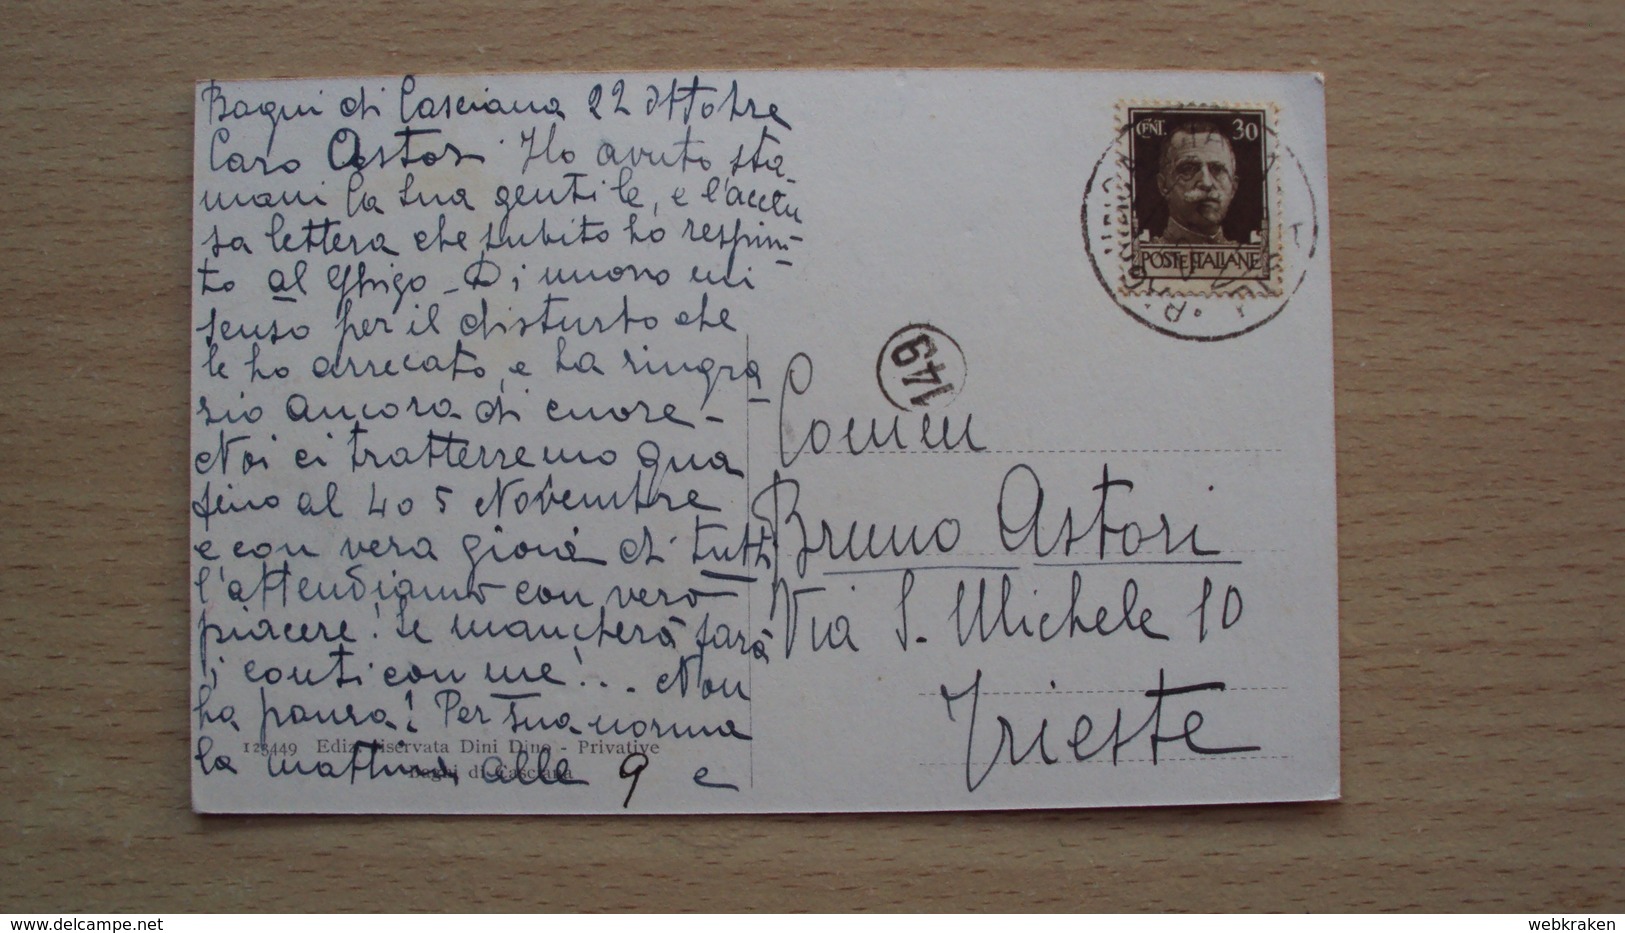 Bagni di Casciana 22 Ottobre
Caro Astori Ho avuto sta-
mani la sua gentile, e l'acclu
sa lettera che subito ho respin-
to al Ghigo - Di nuovo mi
scuso per il disturbo che
le ho arrecato, e La ringra
zio ancora di cuore -
Noi ci tratterremo qua
fino al 4 o 5 Novembre
e con vera gioia di tutti
l'attendiamo con vero
piacere! Se mancherà farà
i conti con me!... Non
ha paura? Per sua norma
la mattina alle 9 e
123449 Ediz. riservata Dini Dino - Privative
Bagni di Casciana
CENT. 30
POSTE ITALIANE
149
Comm
Bruno Astori
Via S. Michele 10
Trieste
delcampe.net
webkraken